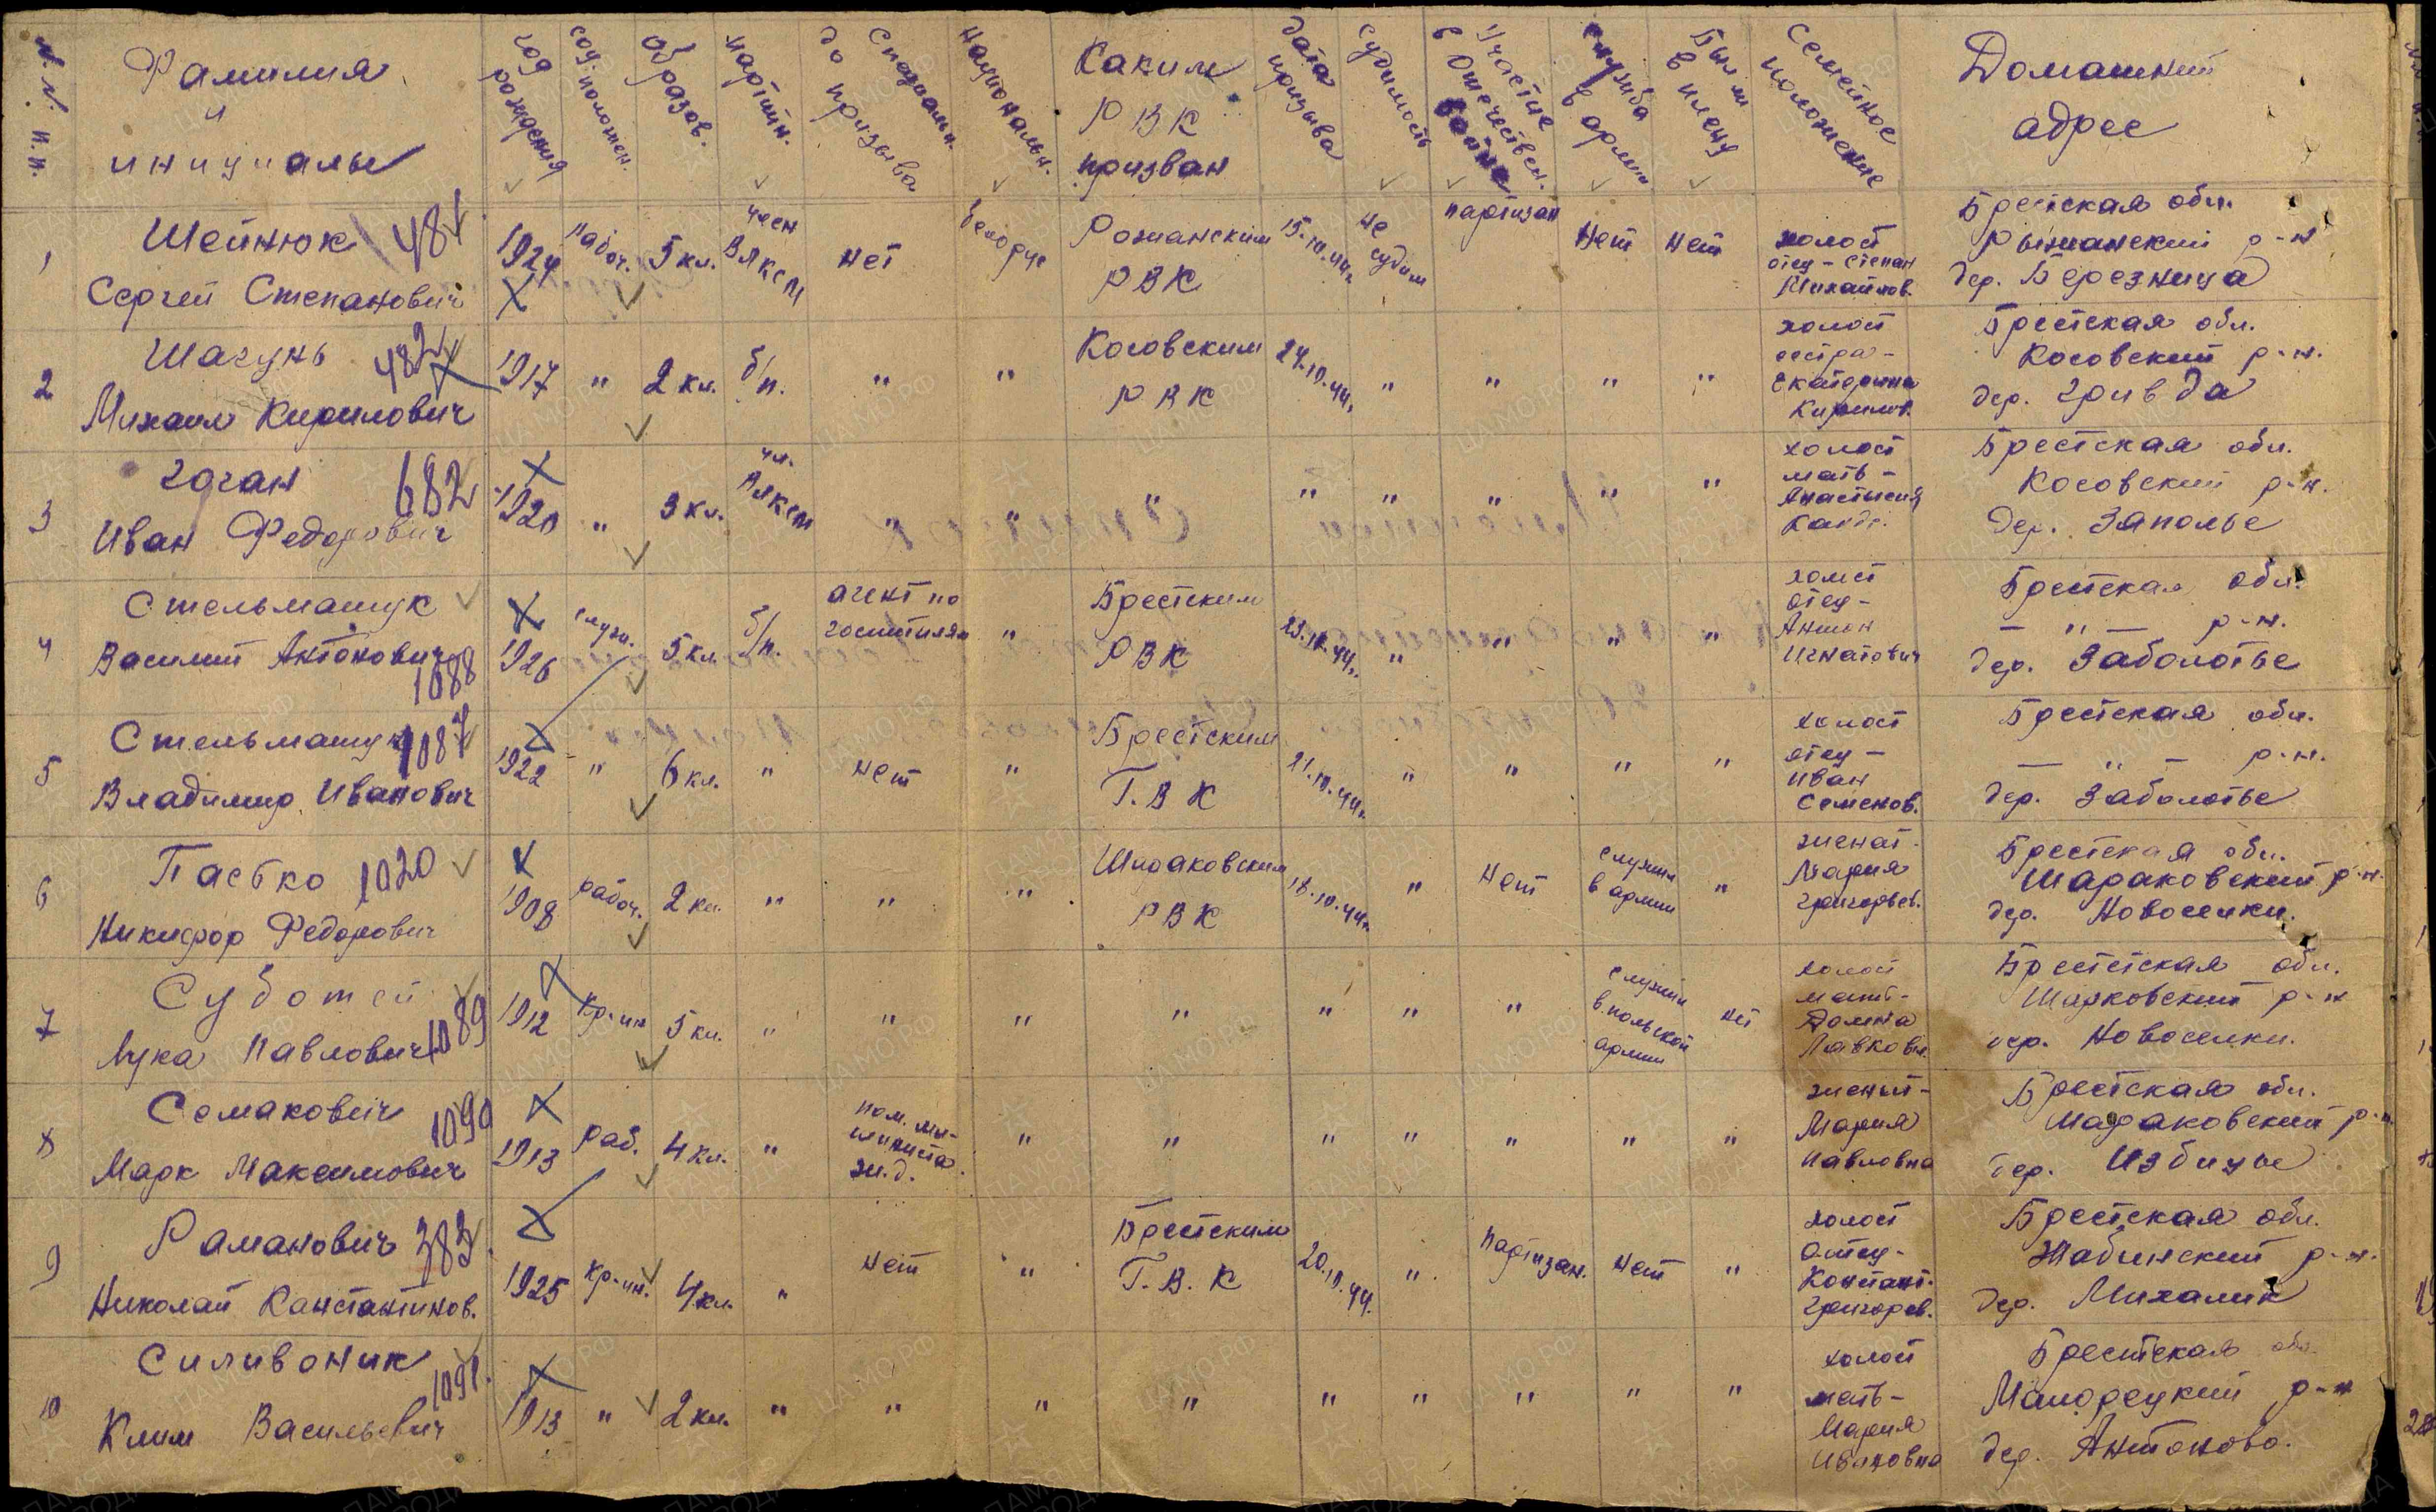 № № п.п.
Фамилия и инициалы
год рождения
соц. положен.
Образов.
партийн.
Специальн. до призыва
национальн.
Каким РВК призван
дата призыва
судимость
Участие в Отечествен. войне
служба в армии
Был ли в плену
Семейное положение
Домашний адрес
1 Шейнюк 481 Сергей Степанович 1924 рабоч. 5 кл. член ВЛКСМ нет белорус Ружанским РВК 15.10.44г. не судим партизан нет нет холост отец - Степан Михайлов. Брестская обл. Ружанский р-н дер. Березница
2 Шагунь 482 Михаил Кирилович 1917 " 2 кл. б/п. " " Косовским РВК 24.10.44г. " " " " холост сестра - Екатерина Кирилов. Брестская обл. Косовский р-н. дер. Гривда
3 Гоган 682 Иван Федорович 1920 " 3 кл. чл. ВЛКСМ " " " " " " " " холост мать - Анастасия Брестская обл. Косовский р-н. дер. Заполье
4 Стельмашук Василий Антонович 1088 1926 служ. 5 кл. б/п. агент по госпиталям " Брестским РВК 23.10.44г. " " " " холост отец - Антон Игнатович Брестская обл. — " — р-н. дер. Заболотье
5 Стельмашук 1087 Владимир Иванович 1922 " 6 кл. " нет " Брестским Г.В.К 21.10.44г. " " " " холост отец - Иван Семенов. Брестская обл. — " — р-н. дер. Заболотье
6 Пасько 1020 Никифор Федорович 1908 рабоч. 2 кл. " " " РВК 18.10.44г. " нет служил в армии " женат. Мария Григорьев. Брестская обл. Шараковский р-н. дер. Новоселки.
7 Суботей 1089 Лука Павлович 1912 кр-ин 5 кл. " " " " " " " служил в польской армии нет холост мать - Домна Брестская обл. Шарковский р-н дер. Новоселки.
8 Семакович 1090 Марк Максимович 1913 раб. 4 кл. " пом. машиниста ж.д. " " " " " " " женат - Мария Павловна Брестская обл. р-н дер. Избицы
9 Раманович 383 Николай Канстантинов. 1925 кр-ин. 4 кл. " нет " Брестским Г.В.К 20.10.44. " партизан. нет " холост отец - Констант. Григорев. Брестская обл. Жабинский р-н. дер. Михалин
10 Силивоник 1091. Клим Васильевич 1913 " 2 кл. " " " " " " " " " холост мать - Мария Ивановна Брестская обл. Малорецкий р-н дер. Антоново.